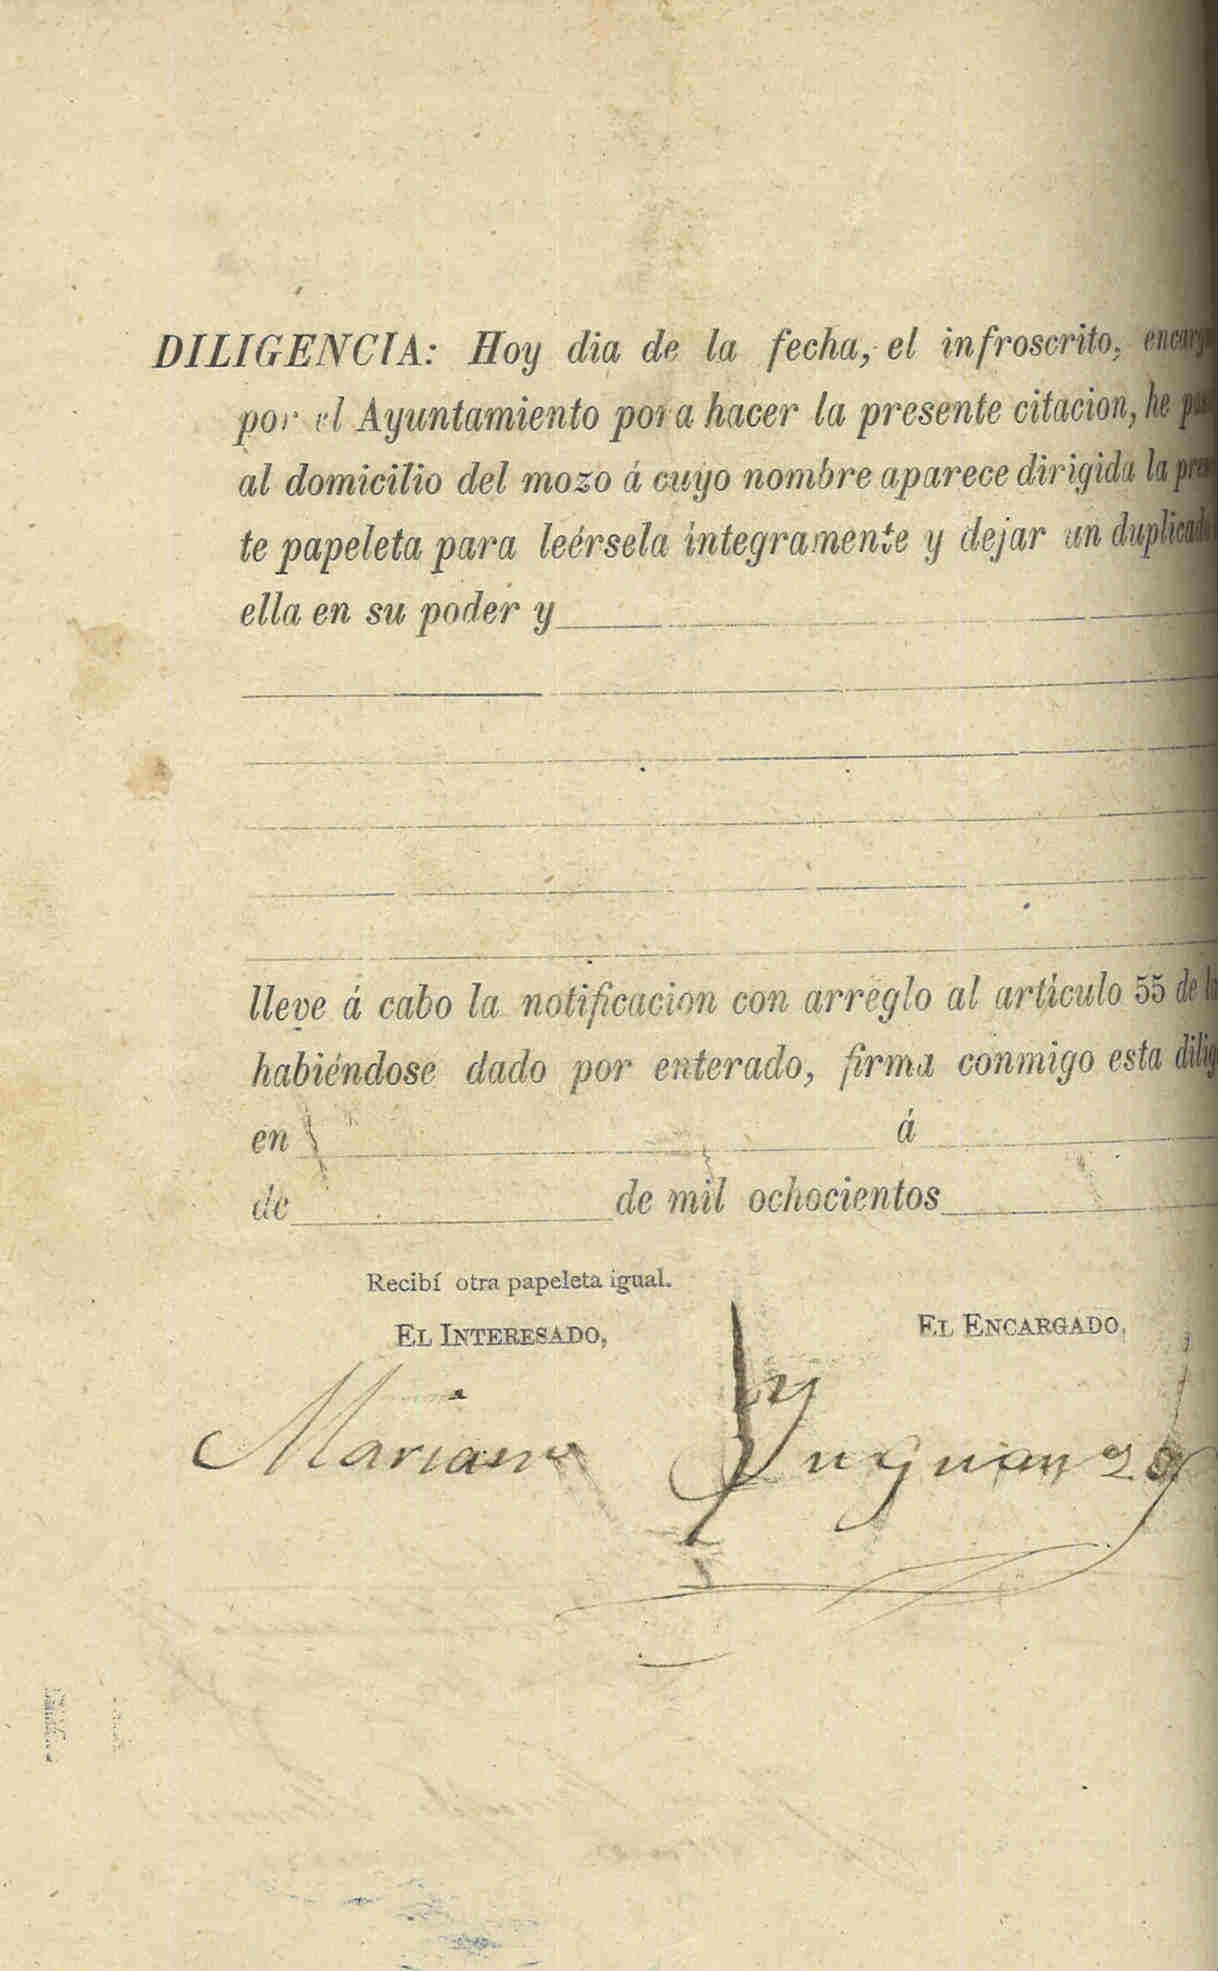 DILIGENCIA: Hoy dia de la fecha, el infroscrito,
por el Ayuntamiento para hacer la presente citacion, he
al domicilio del mozo á cuyo nombre aparece dirigida la
te papeleta para leérsela integramente y dejar un duplicado
ella en su poder y
lleve á cabo la notificacion con arreglo al artículo 55 de
habiéndose dado por enterado, firma conmigo esta
en á
de de mil ochocientos
Recibí otra papeleta igual.
EL INTERESADO, EL ENCARGADO,
Mariano